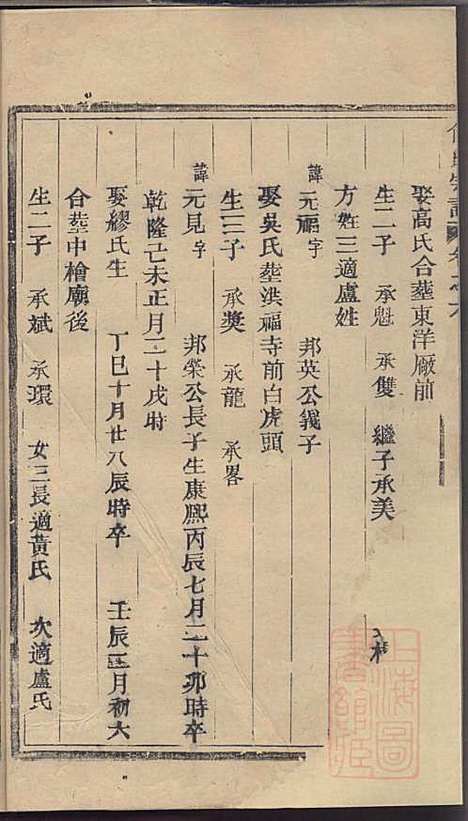 娶高氏合葬東洋厰前
生二子 承魁 承雙 繼子承美
方姓三適盧姓
諱元福字 邦英公義子
娶吳氏葬洪福寺前白虎頭
生三子 承奬 承龍 承畧
諱元見字 邦榮公長子生康熙丙辰七月二十卯時卒
乾隆己未正月二十戌時
娶繆氏生 丁巳十月廿八辰時卒 壬辰正月初六
合葬中檜廟後
生二子 承斌 承環 女三長適黃氏 次適盧氏
上海圖書館藏